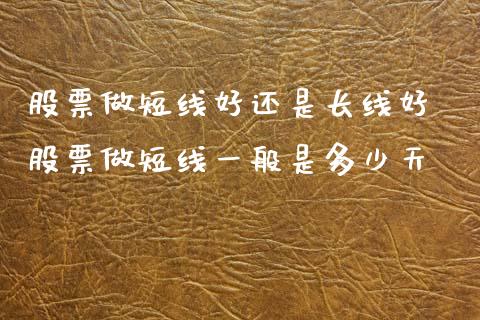 股票做短线好还是长线好
股票做短线一般是多少天